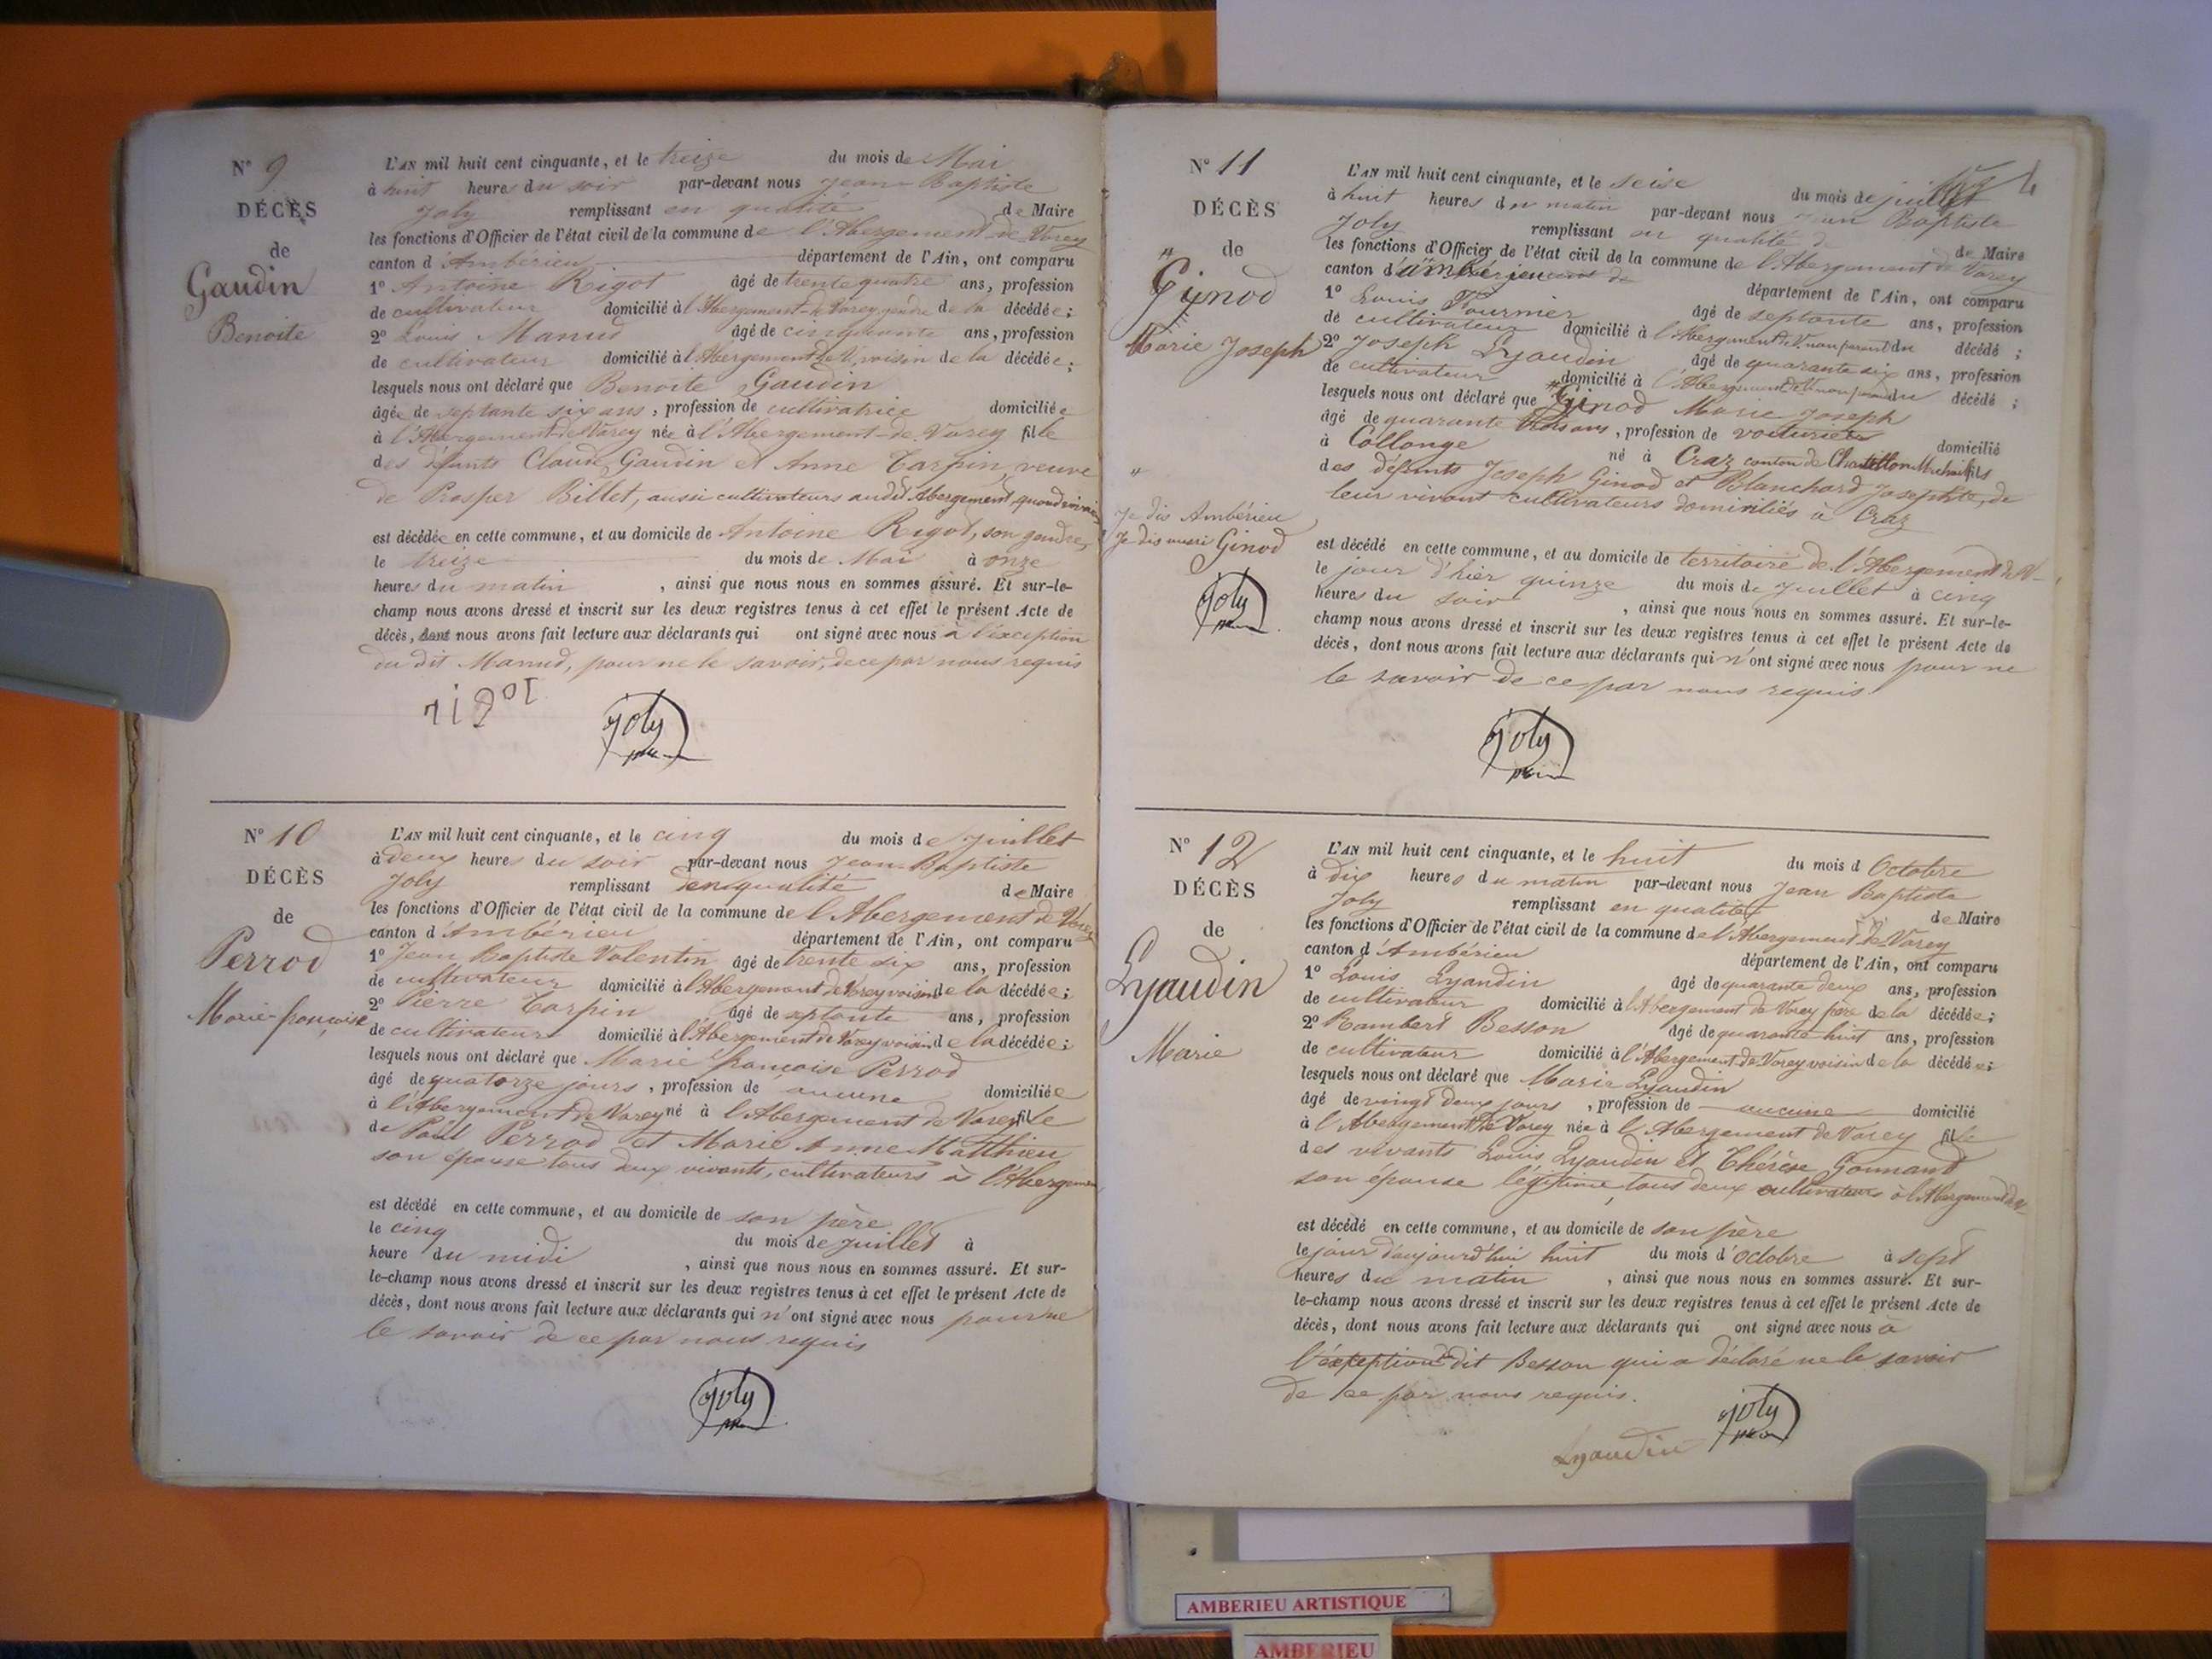 N° 9
DÉCÈS
de
Gaudin
Benoite
L'AN mil huit cent cinquante, et le treize du mois de Mai
à huit heures du soir par-devant nous Jean-Baptiste
Joly remplissant en qualité de Maire
les fonctions d'Officier de l'état civil de la commune de l'Abergement-de-Varey
canton d'Ambérieu département de l'Ain, ont comparu
1° Antoine Rigot âgé de trente quatre ans, profession
de cultivateur domicilié à l'Abergement-de Varey, gendre de la décédée;
2° Louis Manud âgé de cinquante ans, profession
de cultivateur domicilié à l'Abergement de V. voisin de la décédée;
lesquels nous ont déclaré que Benoite Gaudin
âgée de septante six ans, profession de cultivatrice domiciliée
à l'Abergement-de Varey née à l'Abergement-de-Varey fille
des défunts Claude Gaudin et Anne Tarpin, veuve
de Prosper Billet, aussi cultivateurs audit Abergement, quand vivaient
est décédée en cette commune, et au domicile de Antoine Rigot, son gendre,
le treize du mois de Mai à onze
heures du matin, ainsi que nous nous en sommes assuré. Et sur-le-
champ nous avons dressé et inscrit sur les deux registres tenus à cet effet le présent Acte de
décès, dont nous avons fait lecture aux déclarants qui ont signé avec nous à l'exception
du dit Manud, pour ne le savoir, de ce par nous requis
rigot
Joly
N° 10
DÉCÈS
de
Perrod
Marie-françoise
L'AN mil huit cent cinquante, et le cinq du mois de Juillet
à deux heures du soir par-devant nous Jean-Baptiste
Joly remplissant en qualité de Maire
les fonctions d'Officier de l'état civil de la commune de l'Abergement de Varey
canton d'Ambérieu département de l'Ain, ont comparu
1° Jean Baptiste Valentin âgé de trente six ans, profession
de cultivateur domicilié à l'Abergement de Varey voisin de la décédée;
2° Pierre Tarpin âgé de septante ans, profession
de cultivateur domicilié à l'Abergement de Varey voisin de la décédée;
lesquels nous ont déclaré que Marie françoise Perrod
âgé de quatorze jours, profession de aucune domiciliée
à l'Abergement de Varey né à l'Abergement de Varey fille
de Paul Perrod et Marie Anne Matthieu
son épouse tous deux vivants, cultivateurs à l'Abergement
est décédé en cette commune, et au domicile de son père
le cinq du mois de Juillet à
heure du midi, ainsi que nous nous en sommes assuré. Et sur-
le-champ nous avons dressé et inscrit sur les deux registres tenus à cet effet le présent Acte de
décès, dont nous avons fait lecture aux déclarants qui n'ont signé avec nous pour ne
le savoir de ce par nous requis
Joly
N° 11
DÉCÈS
de
Ginod
Marie Joseph
"
Je dis Ambérieu
Je dis aussi Ginod
Joly
L'AN mil huit cent cinquante, et le seise du mois de juillet
à huit heures du matin par-devant nous Jean Baptiste
Joly remplissant en qualité de Maire
les fonctions d'Officier de l'état civil de la commune de l'Abergement de Varey
canton d'ambérieu département de l'Ain, ont comparu
1° Louis Fournier âgé de septante ans, profession
de cultivateur domicilié à l'Abergement de V. non parent du décédé;
2° Joseph Lyaudin âgé de quarante six ans, profession
de cultivateur domicilié à l'Abergement de V. non parent du décédé;
lesquels nous ont déclaré que Ginod Marie Joseph
âgé de quarante trois ans, profession de voiturier domicilié
à Collonge né à Craz canton de Chatillon Michaille fils
des défunts Joseph Ginod et Blanchard Josephte, de
leur vivant cultivateurs domiciliés à Craz
est décédé en cette commune, et au domicile de territoire de l'Abergement de V-
le jour d'hier quinze du mois de Juillet à cinq
heures du soir, ainsi que nous nous en sommes assuré. Et sur-le-
champ nous avons dressé et inscrit sur les deux registres tenus à cet effet le présent Acte de
décès, dont nous avons fait lecture aux déclarants qui n'ont signé avec nous pour ne
le savoir de ce par nous requis
Joly
N° 12
DÉCÈS
de
Lyaudin
Marie
L'AN mil huit cent cinquante, et le huit du mois d Octobre
à dix heures du matin par-devant nous Jean Baptiste
Joly remplissant en qualité de Maire
les fonctions d'Officier de l'état civil de la commune de l'Abergement de Varey
canton d'Ambérieu département de l'Ain, ont comparu
1° Louis Lyaudin âgé de quarante deux ans, profession
de cultivateur domicilié à l'Abergement de Varey père de la décédée;
2° Rambert Besson âgé de quarante huit ans, profession
de cultivateur domicilié à l'Abergement de Varey voisin de la décédée;
lesquels nous ont déclaré que Marie Lyaudin
âgé de vingt deux jours, profession de aucune domicilié
à l'Abergement de Varey née à l'Abergement de Varey fille
des vivants Louis Lyaudin et Thérèse Gonnand
son épouse légitime, tous deux cultivateurs à l'Abergement de V-
est décédé en cette commune, et au domicile de son père
le jour d'aujourd'hui huit du mois d'octobre à sept
heures du matin, ainsi que nous nous en sommes assuré. Et sur-
le-champ nous avons dressé et inscrit sur les deux registres tenus à cet effet le présent Acte de
décès, dont nous avons fait lecture aux déclarants qui ont signé avec nous à
l'exception du dit Besson qui a déclaré ne le savoir
de ce par nous requis.
Joly
Lyaudin
AMBERIEU ARTISTIQUE
AMBERIEU